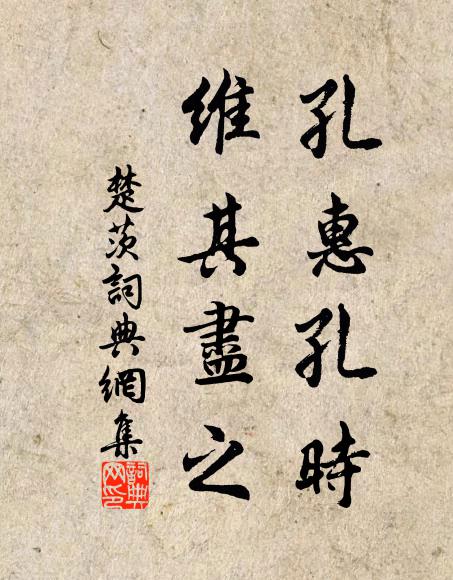 孔惠孔時
維其盡之
楚茨詞典網集
詞典網印